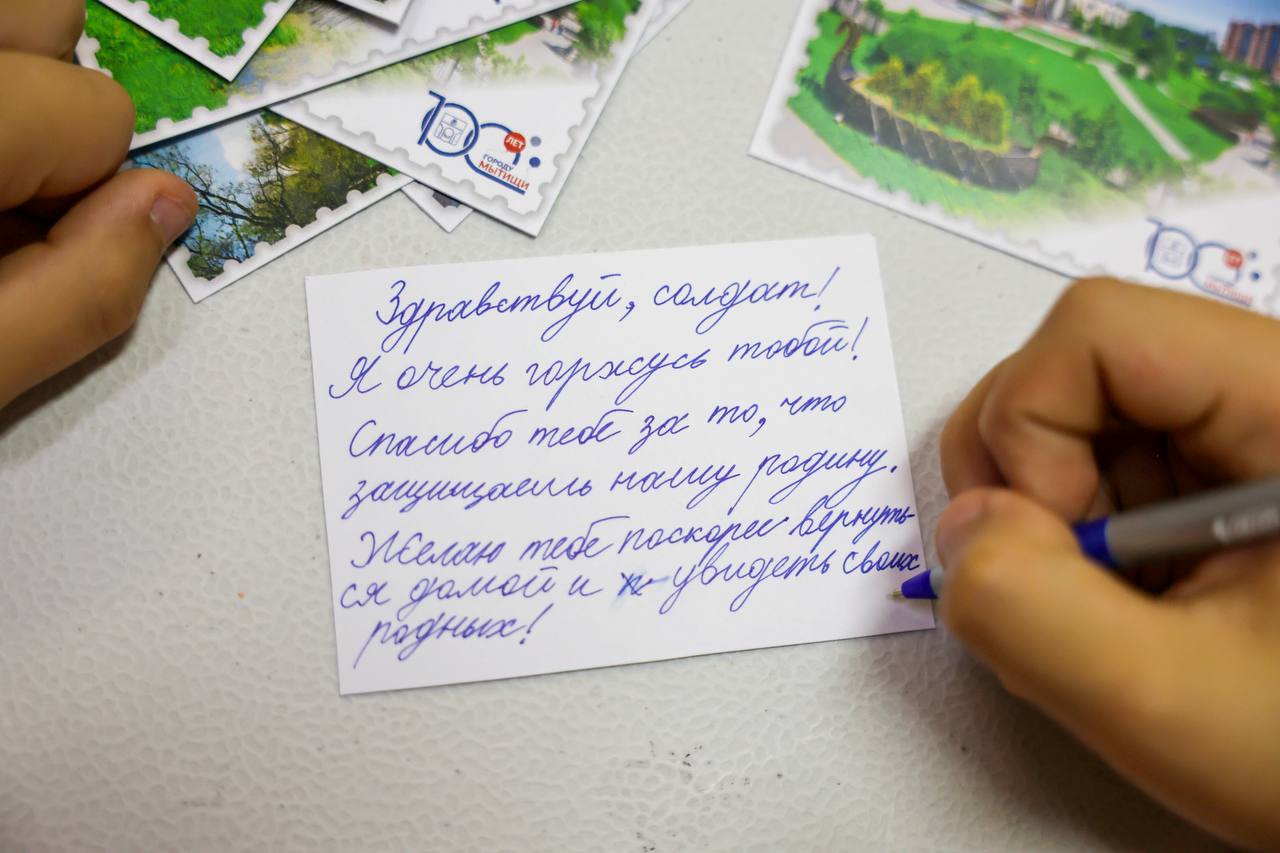 100 ЛЕТ
ГОРОДУ
МЫТИЩИ
100
Здравствуй, солдат!
Я очень горжусь тобой!
Спасибо тебе за то, что
защищаешь нашу родину.
Желаю тебе поскорее вернуть-
ся домой и увидеть своих
родных!